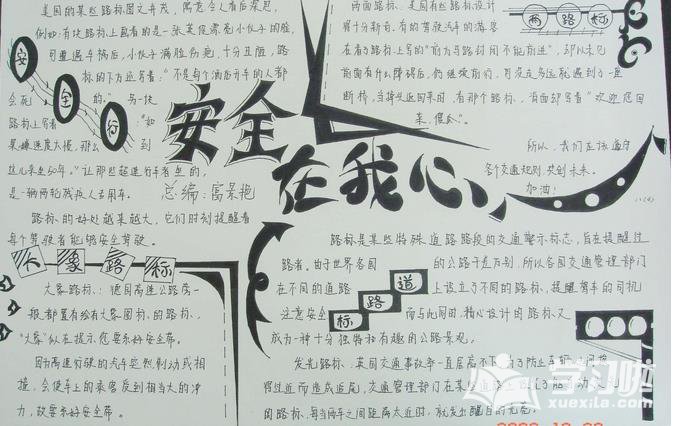 美国的某些路标图文并茂，寓意令人看后深思，
例如：有块路标上画着的是一张英俊漂亮小伙子的脸，
可遭遇车祸后，小伙子满脸伤疤，十分丑陋，路
标的下方还写着："不是每个酒后开车的人都
会死的。"另一块
路标上写着："如
果嫌速度太慢，那么到
这儿来坐50年。"让那些超速行车者坐的，
是一辆两轮残疾人专用车。
路标的好处越来越大，它们时刻提醒着
每个驾驶者能够安全驾驶。
安全行
安全
在我心
总编：富景艳
两路标
两面路标、美国有些路标设计
得十分新奇。有的驾驶汽车的游客
在看了路标上写的"前方马路封闭不能前进"，却以未见
前面有什么障碍后，仍继续前行，可没走多远就遇到了一座
断桥，当掉头返回来时，看那个路标，背面却写着"欢迎您回
来，傻瓜"。
所以，我们应该遵守
各个交通规则，共创未来。
加油！
大象路标
大象路标：德国高速公路旁一
般都置有绘有大象图标的路标，
"大象"似在提示您要系好安全带。
因为高速行驶的汽车突然制动或相
撞，会使车上的乘客受到相当大的冲
力，故要系好安全带。
路标是某些特殊道路路段的交通警示标志，旨在提醒过
路者。由于世界各国的公路千差万别，所以各国交通管理部门
在不同的道路上设立了不同的路标，提醒驾车的司机
注意安全而与此同时，精心设计的路标又
成为一种十分独特和有趣的公路景观。
道路标
发光路标、英国交通事故率一直居高不下，为了防止车辆间
得过近而造成追尾，交通管理部门在某些道路上
的路标，每当两车之间距离太近时，就发出醒目的光亮，
学习啦
xuexila.com